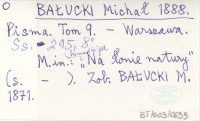 O BAŁUCKI Michał 1888.
Pisma. Tom 9. - Warszawa.
Ss. 215, 8°
M.in.: "Na łonie natury"
(s. - ). Zob. BAŁUCKI M.
1871.